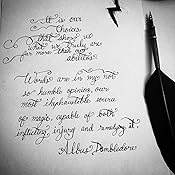 It is our
Choices
that show us
what we truly are
far more than our
abilities.
Words are in my not
so humble opinion, our
most inexhaustible source
of magic, capable of both
inflicting injury and remedying it.
Albus Dumbledore